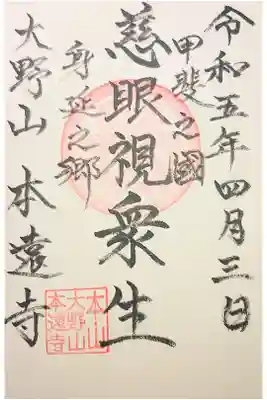 令和五年四月三日
甲斐之國
慈眼視衆生
身延之郷
大野山 本遠寺
本山
大野山
本遠寺